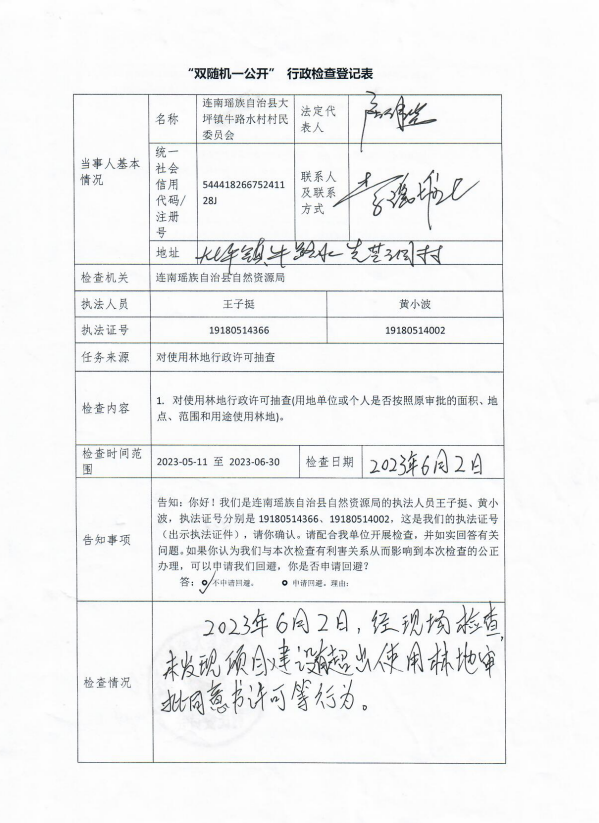 “双随机一公开” 行政检查登记表
当事人基本
情况
名称
连南瑶族自治县大
坪镇牛路水村村民
委员会
法定代
表人
统一
社会
信用
代码/
注册
号
544418266752411
28J
联系人
及联系
方式
地址
大坪镇牛路水
村
检查机关
连南瑶族自治县自然资源局
执法人员
王子挺
黄小波
执法证号
19180514366
19180514002
任务来源
对使用林地行政许可抽查
检查内容
1. 对使用林地行政许可抽查(用地单位或个人是否按照原审批的面积、地
点、范围和用途使用林地)。
检查时间范
围
2023-05-11 至 2023-06-30
检查日期
2023年6月2日
告知事项
告知：你好！我们是连南瑶族自治县自然资源局的执法人员王子挺、黄小
波，执法证号分别是 19180514366、19180514002，这是我们的执法证号
（出示执法证件），请你确认。请配合我单位开展检查，并如实回答有关
问题。如果你认为我们与本次检查有利害关系从而影响到本次检查的公正
办理，可以申请我们回避，你是否申请回避？
答： 不申请回避。 申请回避。理由:
检查情况
2023年6月2日，经现场检查，
未发现项目建设有超出使用林地审
批同意书许可等行为。